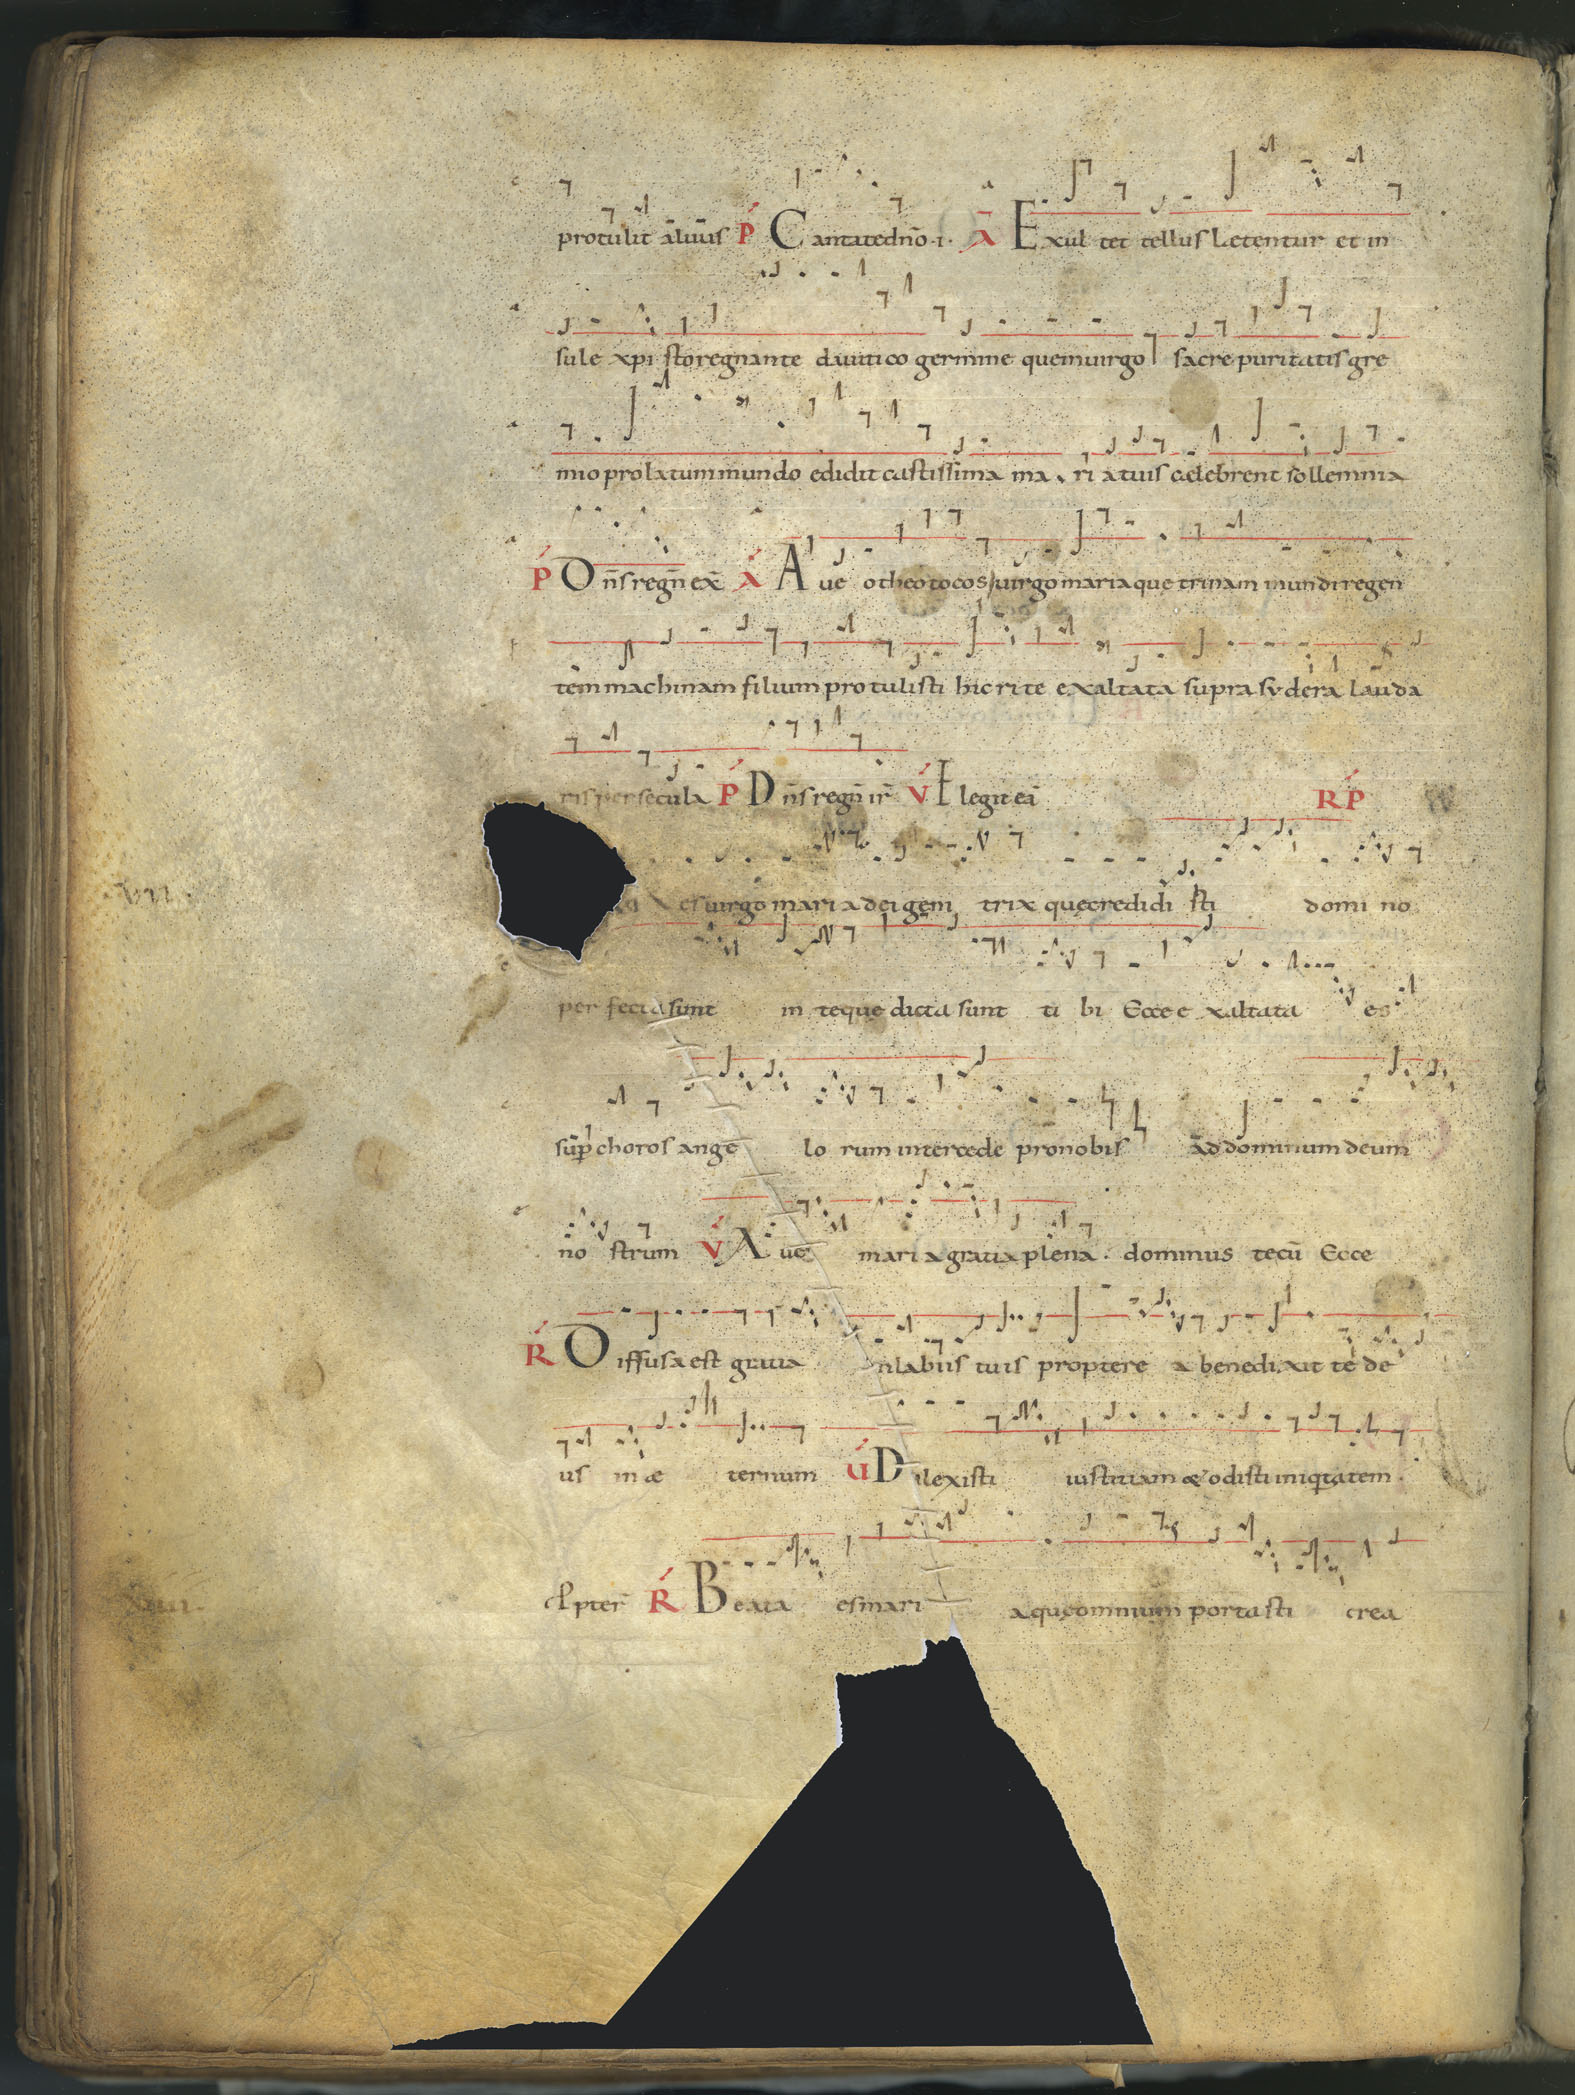 protulit aluus P Cantatedno·i· A Exultet tellus Lætentur et in
sule xpisto regnante dauitico germine quem uirgo sacre puritatis gre
mio prolatum mundo edidit castissima maria tuis celebrent sollemnia
P Dns regn ex A Aue o theotocos uirgo maria que trinam mundi regen
tem machinam filium protulisti hic rite exaltata supra sydera lauda
ris per secula P Dns regn ir V Elegit eā RP
es uirgo maria dei genitrix quę credidisti domino
perfecta sunt in te que dicta sunt tibi Ecce exaltata es
sup choros angelorum intercede pro nobis ad dominum deum
nostrum V Aue maria gratia plena · dominus tecū Ecce
R Diffusa est gratia in labiis tuis propterea benedixit te de
us in æternum V Dilexisti iustitiam & odisti iniqtatem ·
Ppter R Beata es maria quę omnium portasti crea